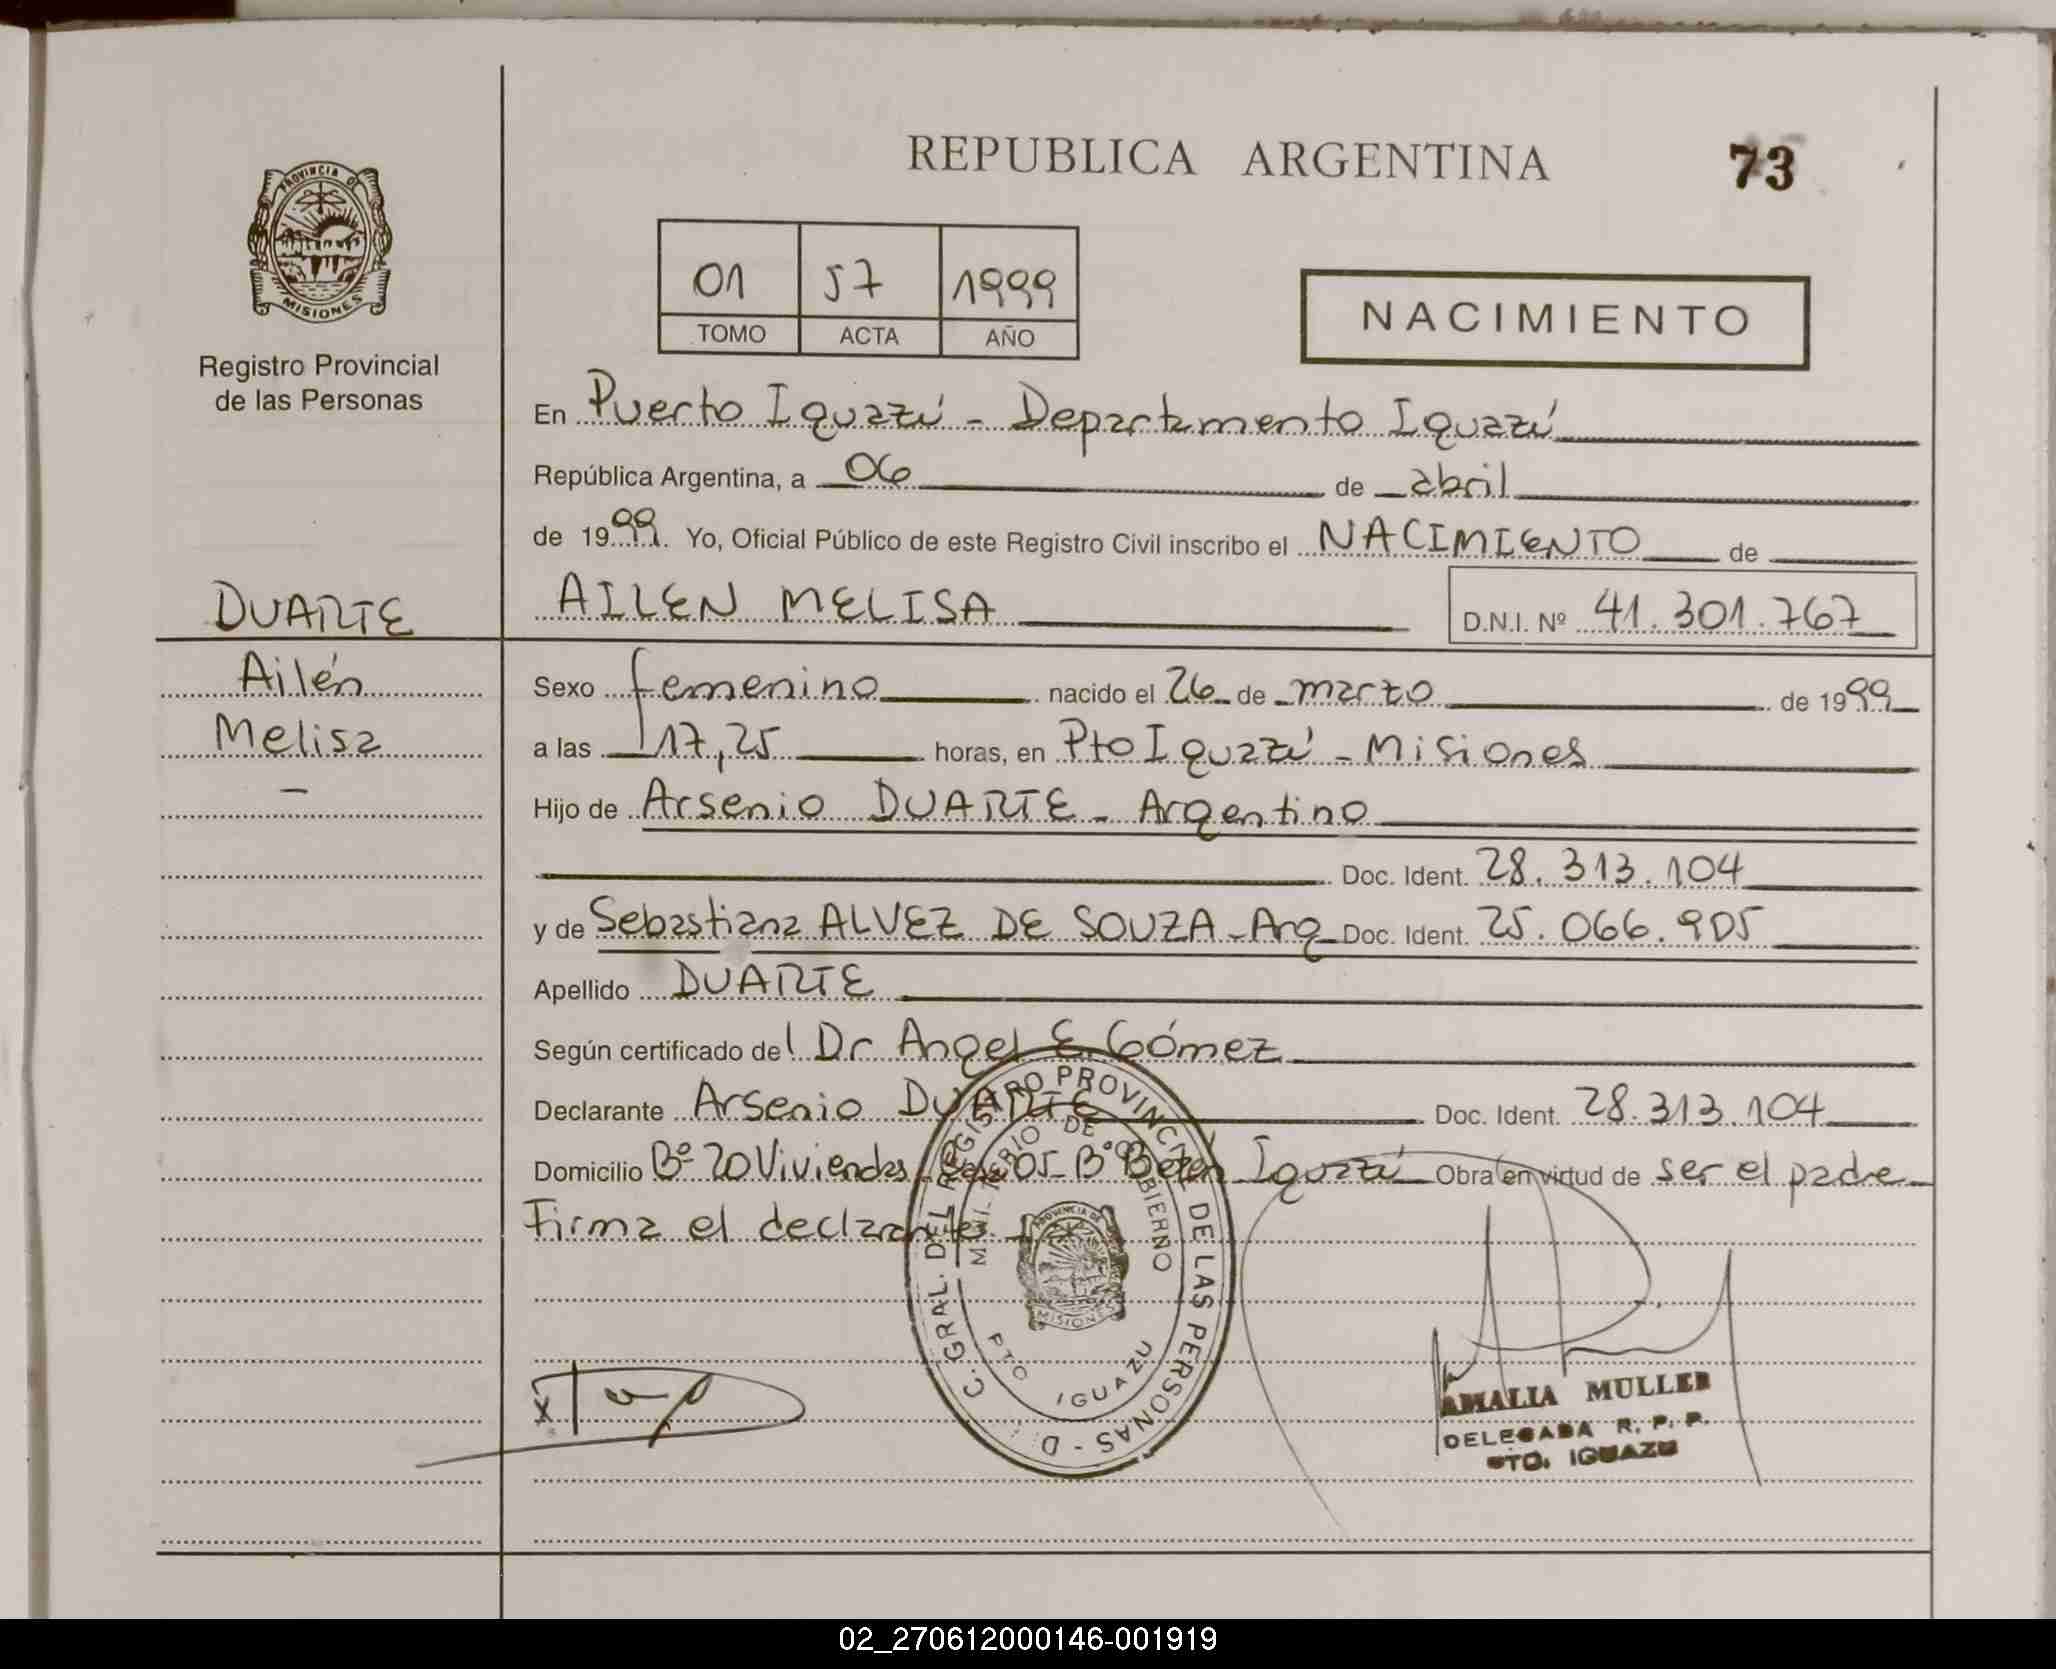 REPUBLICA ARGENTINA
73
PROVINCIA DE
MISIONES
Registro Provincial
de las Personas
01 57 1999
TOMO ACTA AÑO
NACIMIENTO
En Puerto Iguazú - Departamento Iguazú
República Argentina, a 06 de abril
de 1999. Yo, Oficial Público de este Registro Civil inscribo el NACIMIENTO de
DUARTE
AILEN MELISA D.N.I. Nº 41.301.767
Ailén
Sexo femenino nacido el 26 de marzo de 1999
Melisa
a las 17,25 horas, en Pto Iguazú - Misiones
Hijo de Arsenio DUARTE - Argentino
Doc. Ident. 28.313.104
y de Sebastiana ALVEZ DE SOUZA - Arg Doc. Ident. 25.066.905
Apellido DUARTE
Según certificado del Dr Angel E. Gómez
Declarante Arsenio DUARTE Doc. Ident. 28.313.104
Domicilio Bº 20 Viviendas 05 - Bº Belén Iguazú Obra en virtud de ser el padre
Firma el declarante
GRAL. DEL REGISTRO PROVINCIAL DE LAS PERSONAS
MINISTERIO DE GOBIERNO
PROVINCIA DE
MISIONES
PTO IGUAZU
AMALIA MULLER
DELEGADA R. P. P.
PTO. IGUAZU
02_270612000146-001919